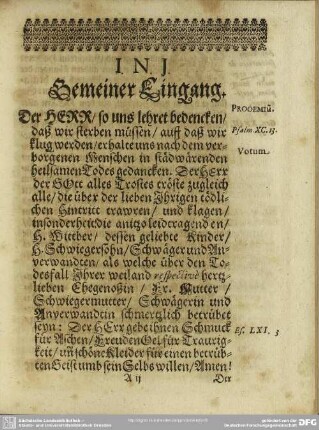 I N J.
Gemeiner Eingang.
Der HERR/ so uns lehret bedencken/
daß wir sterben müssen/ auff daß wir
klug werden/ erhalte uns nach dem ver-
borgenen Menschen in städwärenden
heilsamen Todesgedancken. Der HErr
der GOtt alles Trostes tröste zugleich
alle/ die über der lieben Ihrigen tödli-
chen Hintritt trawren/ und klagen/
insonderheit die anitzo leidtragenden/
H. Wittber/ dessen geliebte Kinder/
H. Schwiegersohn/ Schwäger und An-
verwandten/ als welche über den To-
desfall Ihrer weiland respectivè hertz-
lieben Ehegenoßin/ Fr. Mutter/
Schwiegermutter/ Schwägerin und
Anverwandtin schmertzlich betrübet
seyn: Der HErr gebe ihnen Schmuck
für Aschen/ Freuden Oel für Traurig-
keit/ uñ schöne Kleider für einen betrüb-
ten Geist umb sein Selbs willen/ Amen!
A ij Der
PROOEMIŨ.
Psalm XC. 13.
Votum.
Es. LXI. 3